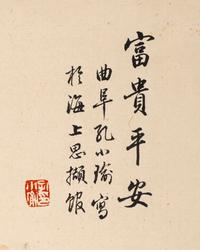 富貴平安
曲阜孔小瑜寫
於海上思擷館